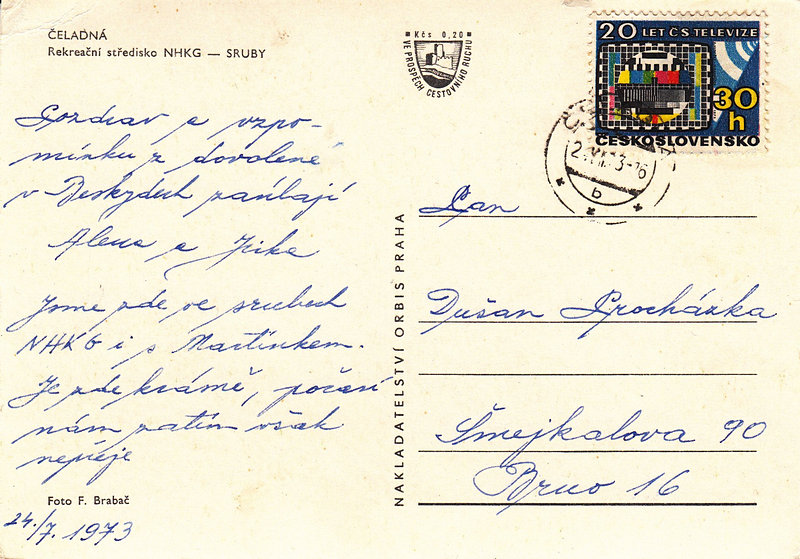 ČELADNÁ
Rekreační středisko NHKG — SRUBY
Pozdrav a vzpo-
mínku z dovolené
v Beskydech zasílají
Alena a Jirka
Jsme zde ve srubech
NHKG i s Martínkem.
Je zde krásně, počasí
nám zatím však
nepřeje
Foto F. Brabač
24./7. 1973
Kčs 0,20
VE PROSPĚCH CESTOVNÍHO RUCHU
NAKLADATELSTVÍ ORBIS PRAHA
20 LET ČS TELEVIZE
30 h
ČESKOSLOVENSKO
b
Pan
Dušan Procházka
Šmejkalova 90
Brno 16